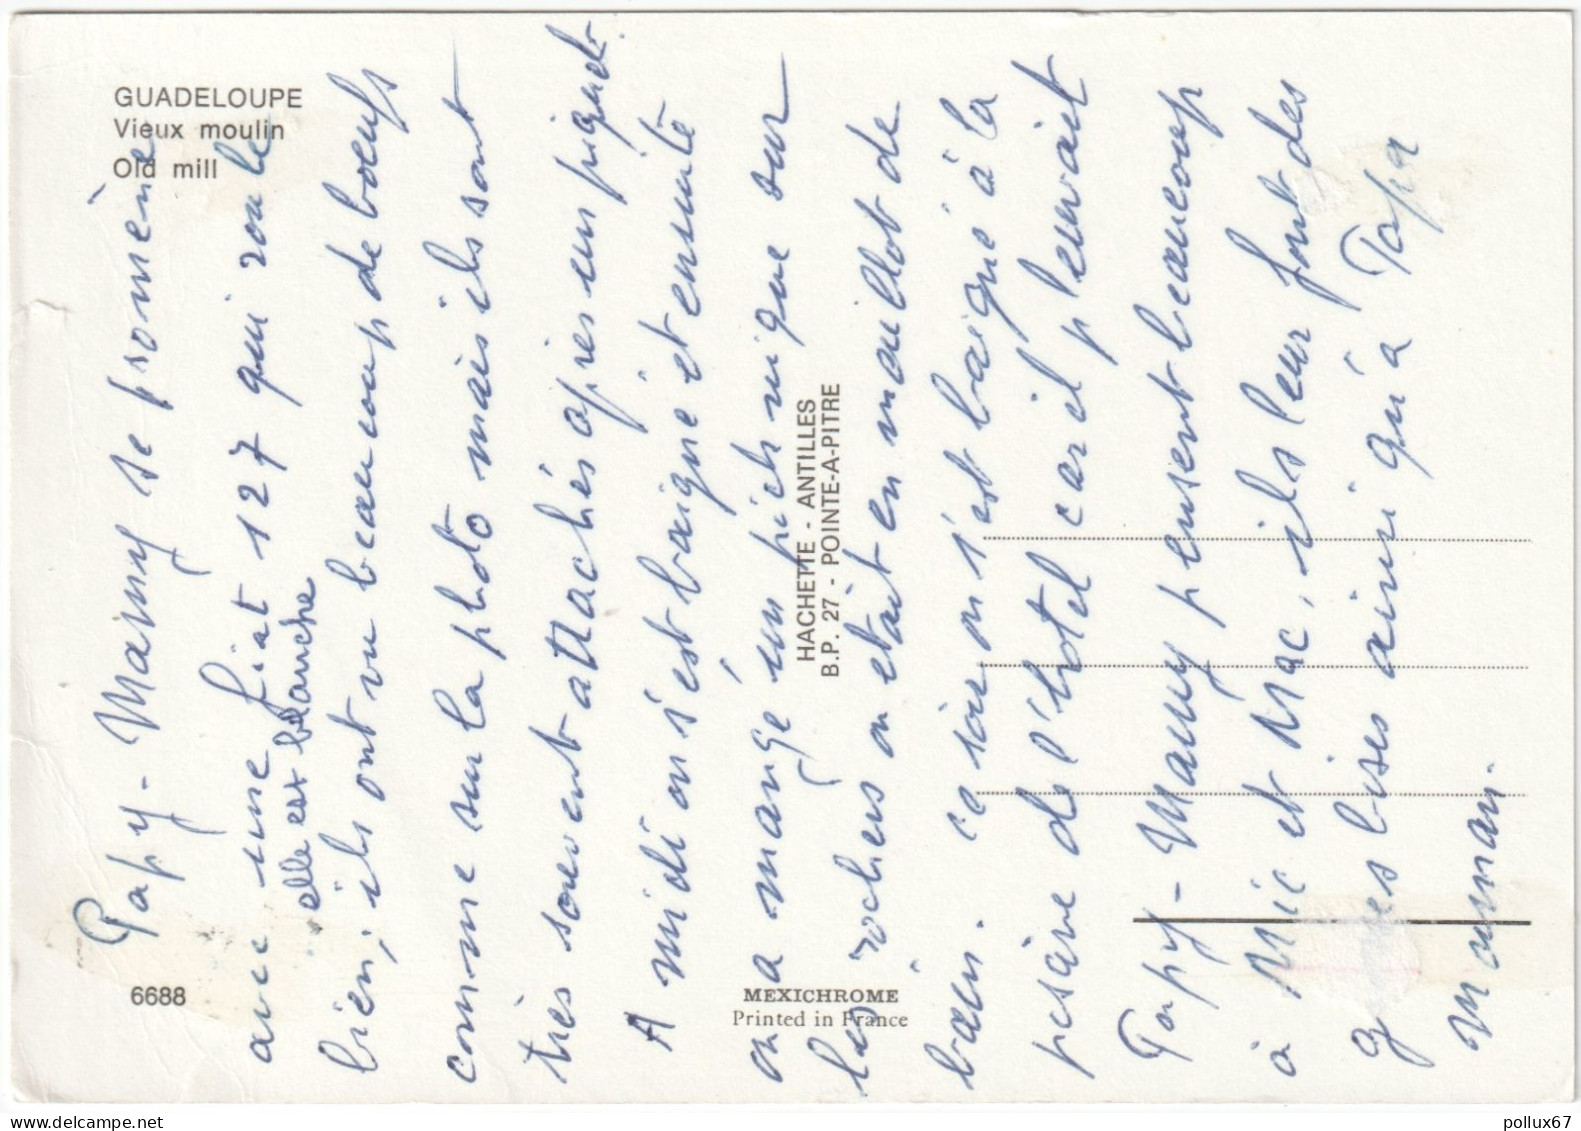 GUADELOUPE
Vieux moulin
Old mill
Papy-Mamy se promène
avec une fiat 127 qui roule
elle est blanche
bien, ils ont vu beaucoup de boeufs
comme sur la photo mais ils sont
très souvent attachés apres un piquet.
A midi on s'est baigné et ensuite
on a mangé un pich nique sur
les rochers on etait en maillot de
bain. ce soir on s'est baigné à la
pisсine de l'hotel car il pleuvait
Papy-Mamy pensent beaucoup
à Mic et Mac, ils leur font des
grosses bises ainsi qu'à Papa
Maman.
HACHETTE - ANTILLES
B.P. 27 - POINTE-A-PITRE
6688
MEXICHROME
Printed in France
pollux67